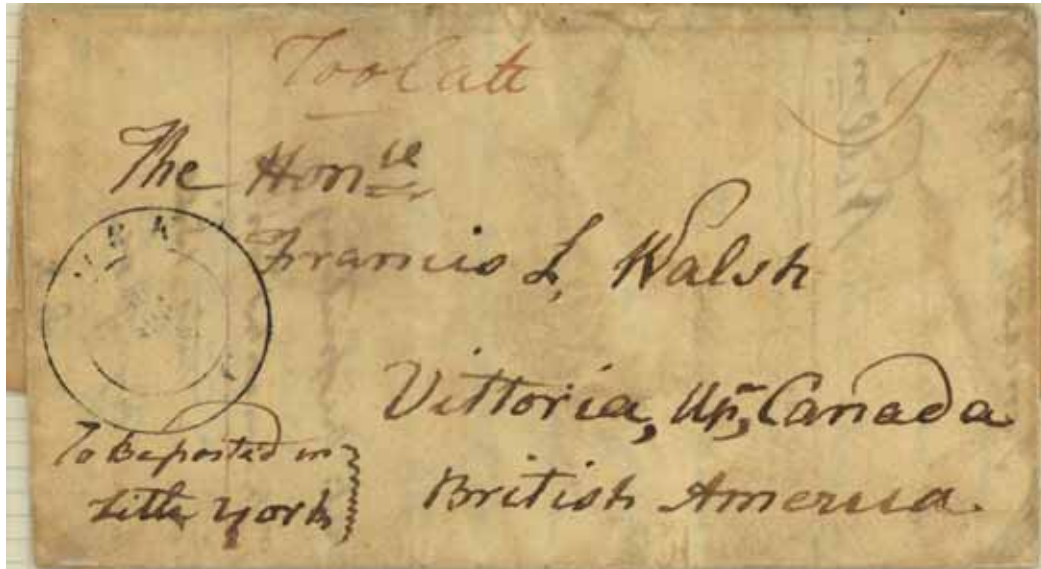 Too Late
The Honble
Francis L, Walsh
Vittoria, Upr, Canada
British America.
To Be posted in
Little York